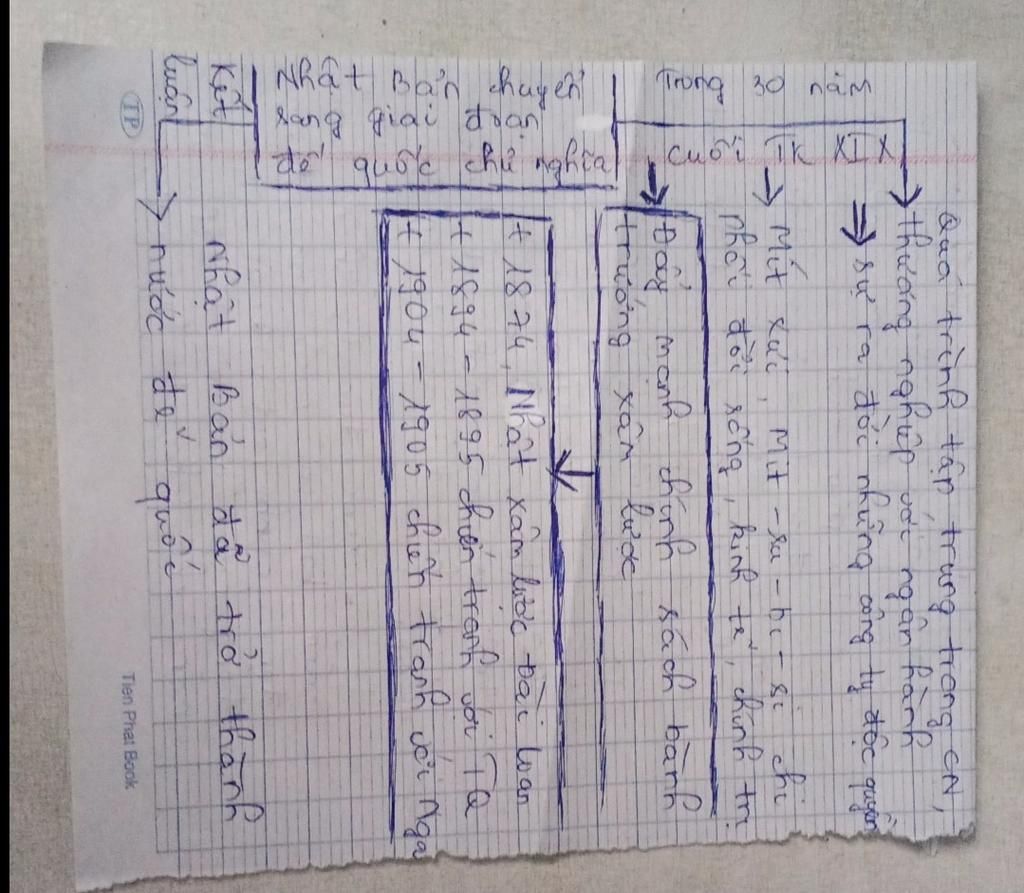 Trong 30 năm
cuối TK XIX
Quá trình tập trung trong CN,
thương nghiệp với ngân hàng
sự ra đời những công ty độc quyền
Mít xưi, Mit-su-bi-si chi
phối đời sống, kinh tế, chính trị
Đẩy mạnh chính sách bành
trướng xâm lược
Nhật Bản chuyển
sang giai đoạn
đế quốc chủ nghĩa
+ 1874, Nhật xâm lược Đài Loan
+ 1894-1895 chiến tranh với TQ
+ 1904-1905 chiến tranh với Nga
Kết
luận
Nhật Bản đã trở thành
nước đế quốc
TP
Tien Phat Book